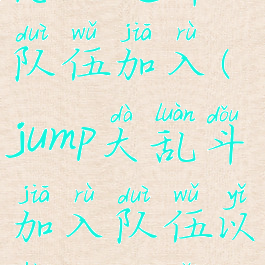 duì wǔ jiā rù
队伍加入(
dà luàn dǒu
jump大乱斗
jiā rù duì wǔ yǐ
加入队伍以